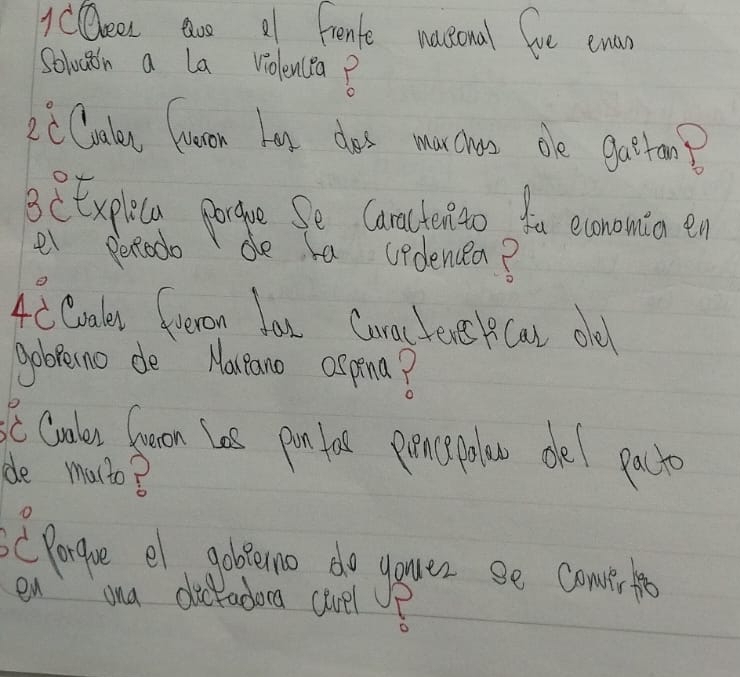 1¿Crees que el frente nacional fue enas
Solución a la violencia?
2¿Cuales fueron las dos marchas de gaetan?
3¿Explica porque se caracterizo la economia en
el periodo de la violencia?
4¿Cuales fueron las caracteristicas del
gobierno de Mariano ospina?
5¿Cuales fueron los puntos principales del pacto
de marzo?
6¿Porque el gobierno de gomez se convirtio
en una dictadora civel?